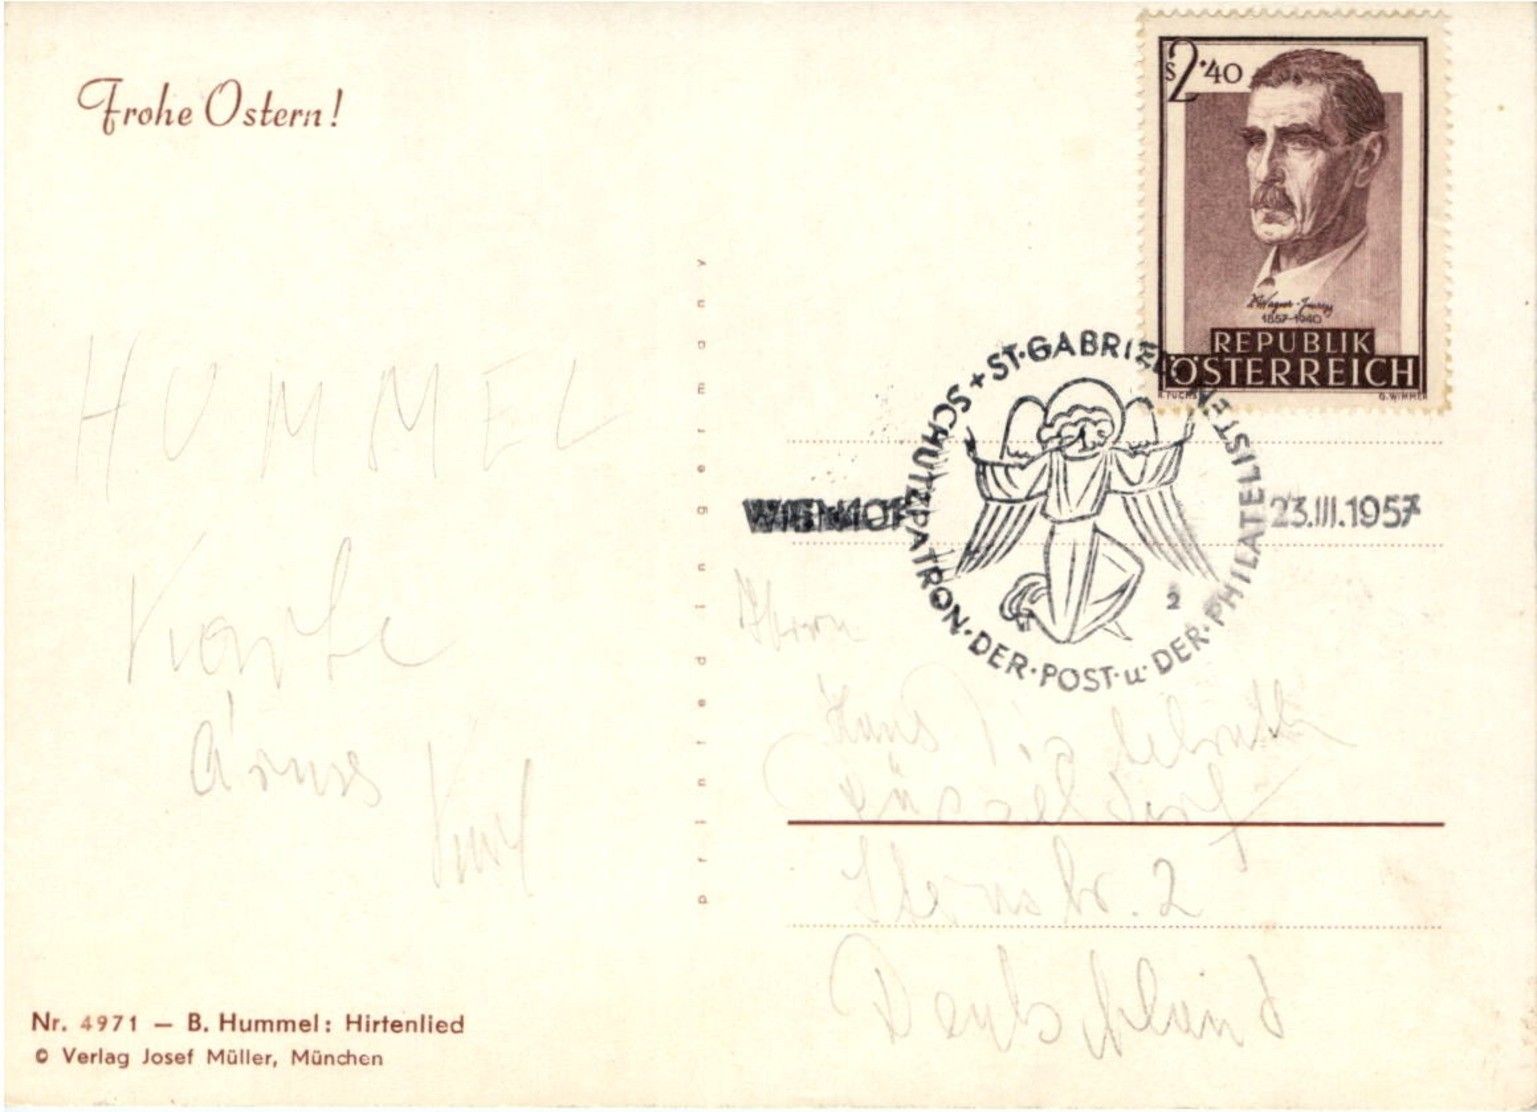 Frohe Ostern!
S 2·40
1857-1940
REPUBLIK
ÖSTERREICH
A. FUCHS
G. WIMMER
+ ST·GABRIEL
SCHUTZPATRON·DER·POST·u·DER·PHILATELISTEN
23.III.1957
2
printed in germany
HUMMEL
Karte
Herrn
Hans
Düsseldorf
Sternstr. 2
Deutschland
Nr. 4971 — B. Hummel: Hirtenlied
© Verlag Josef Müller, München